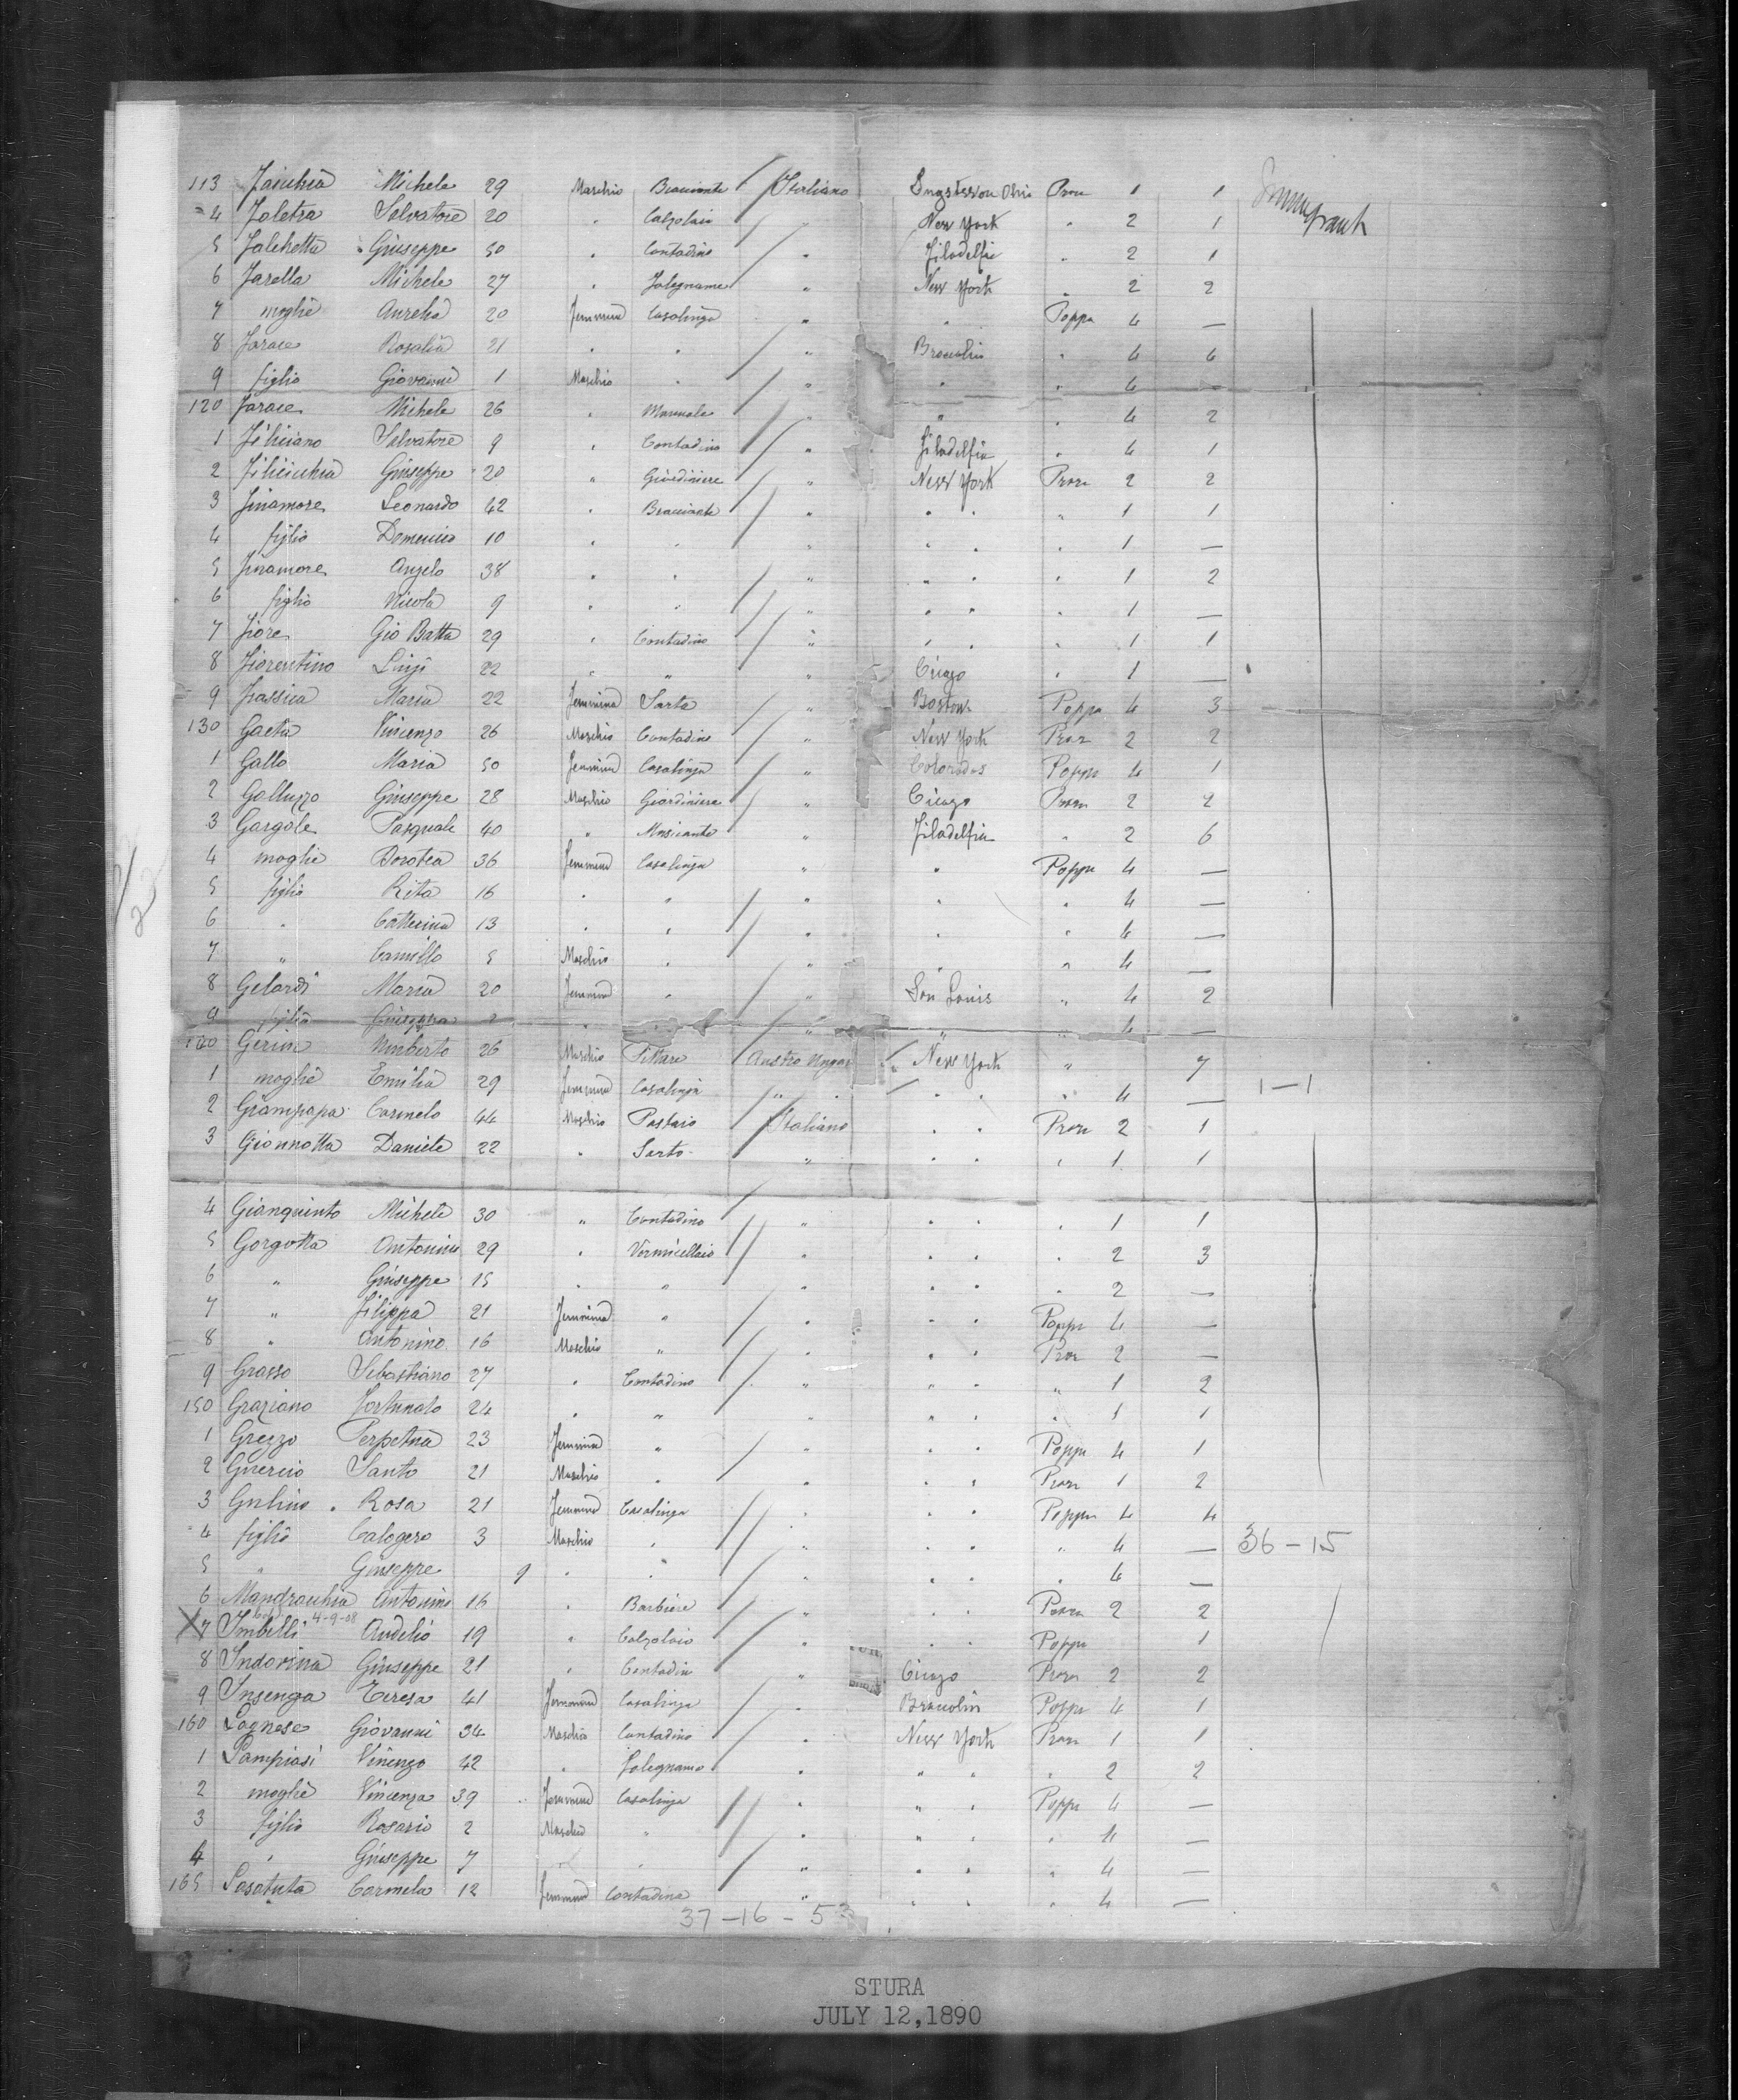 113 Michele 29 Maschio Bracciante Italiano Ohio Prora 1 1 Immigrant
4 Faletra Salvatore 20 " Calzolaio " New York " 2 1
5 Falchetta Giuseppe 50 " Contadino " Filadelfia " 2 1
6 Farella Michele 27 " Falegname " New York " 2 2
7 moglie Aurelia 20 Femmina Casalinga " " Poppa 4 —
8 Farace Rosalia 21 " " " Broccolin " 4 4
9 figlio Giovanni 1 Maschio " " " " 4 —
120 Farace Michele 26 " Manuale " " " 4 2
1 Feliciano Salvatore 9 " Contadino " Filadelfia " 4 1
2 Filiicchia Giuseppe 20 " Giardiniere " New York Prora 2 2
3 Finamore Leonardo 42 " Bracciante " " " " 1 1
4 figlio Domenico 10 " " " " " " 1 —
5 Finamore Angelo 38 " " " " " " 1 2
6 figlio Nicola 9 " " " " " " 1 —
7 Fiore Gio Batta 29 " Contadino " " " " 1 1
8 Fiorentino Luigi 22 " " " Cicago " 1 —
9 Frassica Maria 22 Femmina Sarta " Boston Poppa 4 3
130 Gaeta Vincenzo 26 Maschio Contadino " New York Prora 2 2
1 Gallo Maria 50 Femmina Casalinga " Colorados Poppa 4 1
2 Galluzzo Giuseppe 28 Maschio Giardiniere " Cicago Prora 2 2
3 Gargole Pasquale 40 " Musicante " Filadelfia " 2 6
4 moglie Dorotea 36 Femmina Casalinga " " Poppa 4 —
5 figlia Rita 16 " " " " " 4 —
6 " Catterina 13 " " " " " 4 —
7 " Camillo 5 Maschio " " " " 4 —
8 Gelardi Maria 20 Femmina " " San Louis " 4 2
9 figlia Giuseppa " " " " " 4 —
140 Gerin Umberto 26 Maschio Pittore Austro Ungar " New York " 7
1 moglie Emilia 29 Femmina Casalinga " " " " 4 — 1-1
2 Giampapa Carmelo 44 Maschio Pastaio Italiano " " Prora 2 1
3 Giannotta Daniele 22 " Sarto " " " " 1 1
4 Gianquinto Michele 30 " Contadino " " " " 1 1
5 Gorgotta Antonino 29 " Vermicellaio " " " " 2 3
6 " Giuseppe 15 " " " " " " 2 —
7 " Filippa 21 Femmina " " " " Poppa 4 —
8 " Antonino 16 Maschio " " " " Prora 2 —
9 Grasso Sebastiano 27 " Contadino " " " " 1 2
150 Graziano Fortunato 24 " " " " " " 1 1
1 Grezzo Perpetua 23 Femmina " " " " Poppa 4 1
2 Guercio Santo 21 Maschio " " " " Prora 1 2
3 Gulino Rosa 21 Femmina Casalinga " " " Poppa 4 4
4 figlio Calogero 3 Maschio " " " " " 4 — 36-15
5 " Giuseppe 9 " " " " " " 4 —
6 Mandracchia Antonino 16 " Barbiere " " " Prora 2 2
4-9-08
X 7 Imbelli Audelio 19 " Calzolaio " " " Poppa 1
8 Indovina Giuseppe 21 " Contadin " Cicago Prora 2 2
9 Insenga Teresa 41 Femmina Casalinga " Broccolin Poppa 4 1
160 Lagnese Giovanni 34 Maschio Contadino " New York Prora 1 1
1 Lampiasi Vincenzo 42 " Falegname " " " " 2 2
2 moglie Vincenza 39 Femmina Casalinga " " " Poppa 4 —
3 figlio Rosario 2 Maschio " " " " " 4 —
4 " Giuseppe 7 " " " " " " 4 —
165 Carmela 12 Femmina Contadina " " " " 4 —
37-16-53
STURA
JULY 12,1890